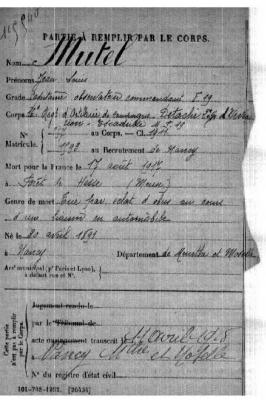 PARTIE À REMPLIR PAR LE CORPS.
Nom Mutel
Prénoms Jean Louis
Grade Capitaine observateur commandant F. 19
Corps Régt d'Artillerie de Campagne Détaché
Escadrille
N° au Corps. — Cl. 1911
Matricule. 1192 au Recrutement de Nancy
Mort pour la France le 17 août 1917
à Forêt de Hesse (Meuse)
Genre de mort Tué par éclat d'obus au cours
d'une en automobile
Né le 20 avril 1891
à Nancy Département de Meurthe et Moselle
Arr' municipal (p' Paris et Lyon),
à défaut rue et N°.
Cette partie
n'est pas à remplir
par le Corps.
Jugement rendu le
par le Tribunal de
acte ou jugement transcrit le 11 avril 1918
à Nancy Mthe et Moselle
N° du registre d'état civil
101-708-1921. [26434]